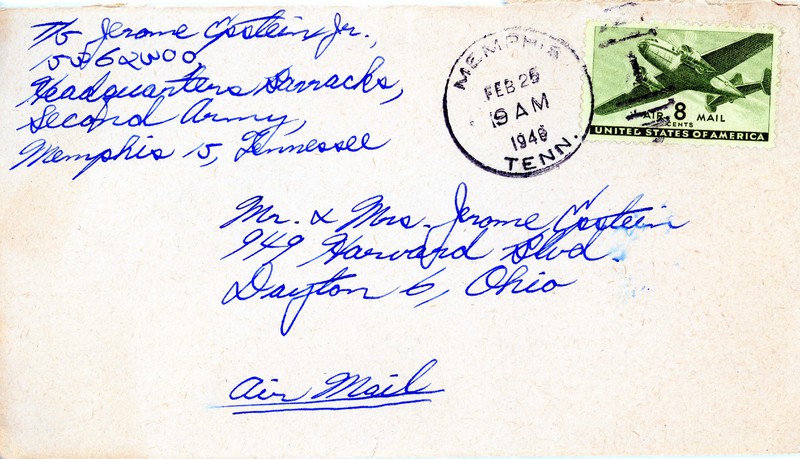 T/5 Jerome Epstein Jr.,
Headquarters Barracks,
Second Army,
Memphis 15, Tennessee
MEMPHIS
FEB 25
9 AM
1946
TENN.
AIR MAIL
8 CENTS
UNITED STATES OF AMERICA
Mr. & Mrs. Jerome Epstein
949 Harvard Blvd.
Dayton 6, Ohio
Air Mail